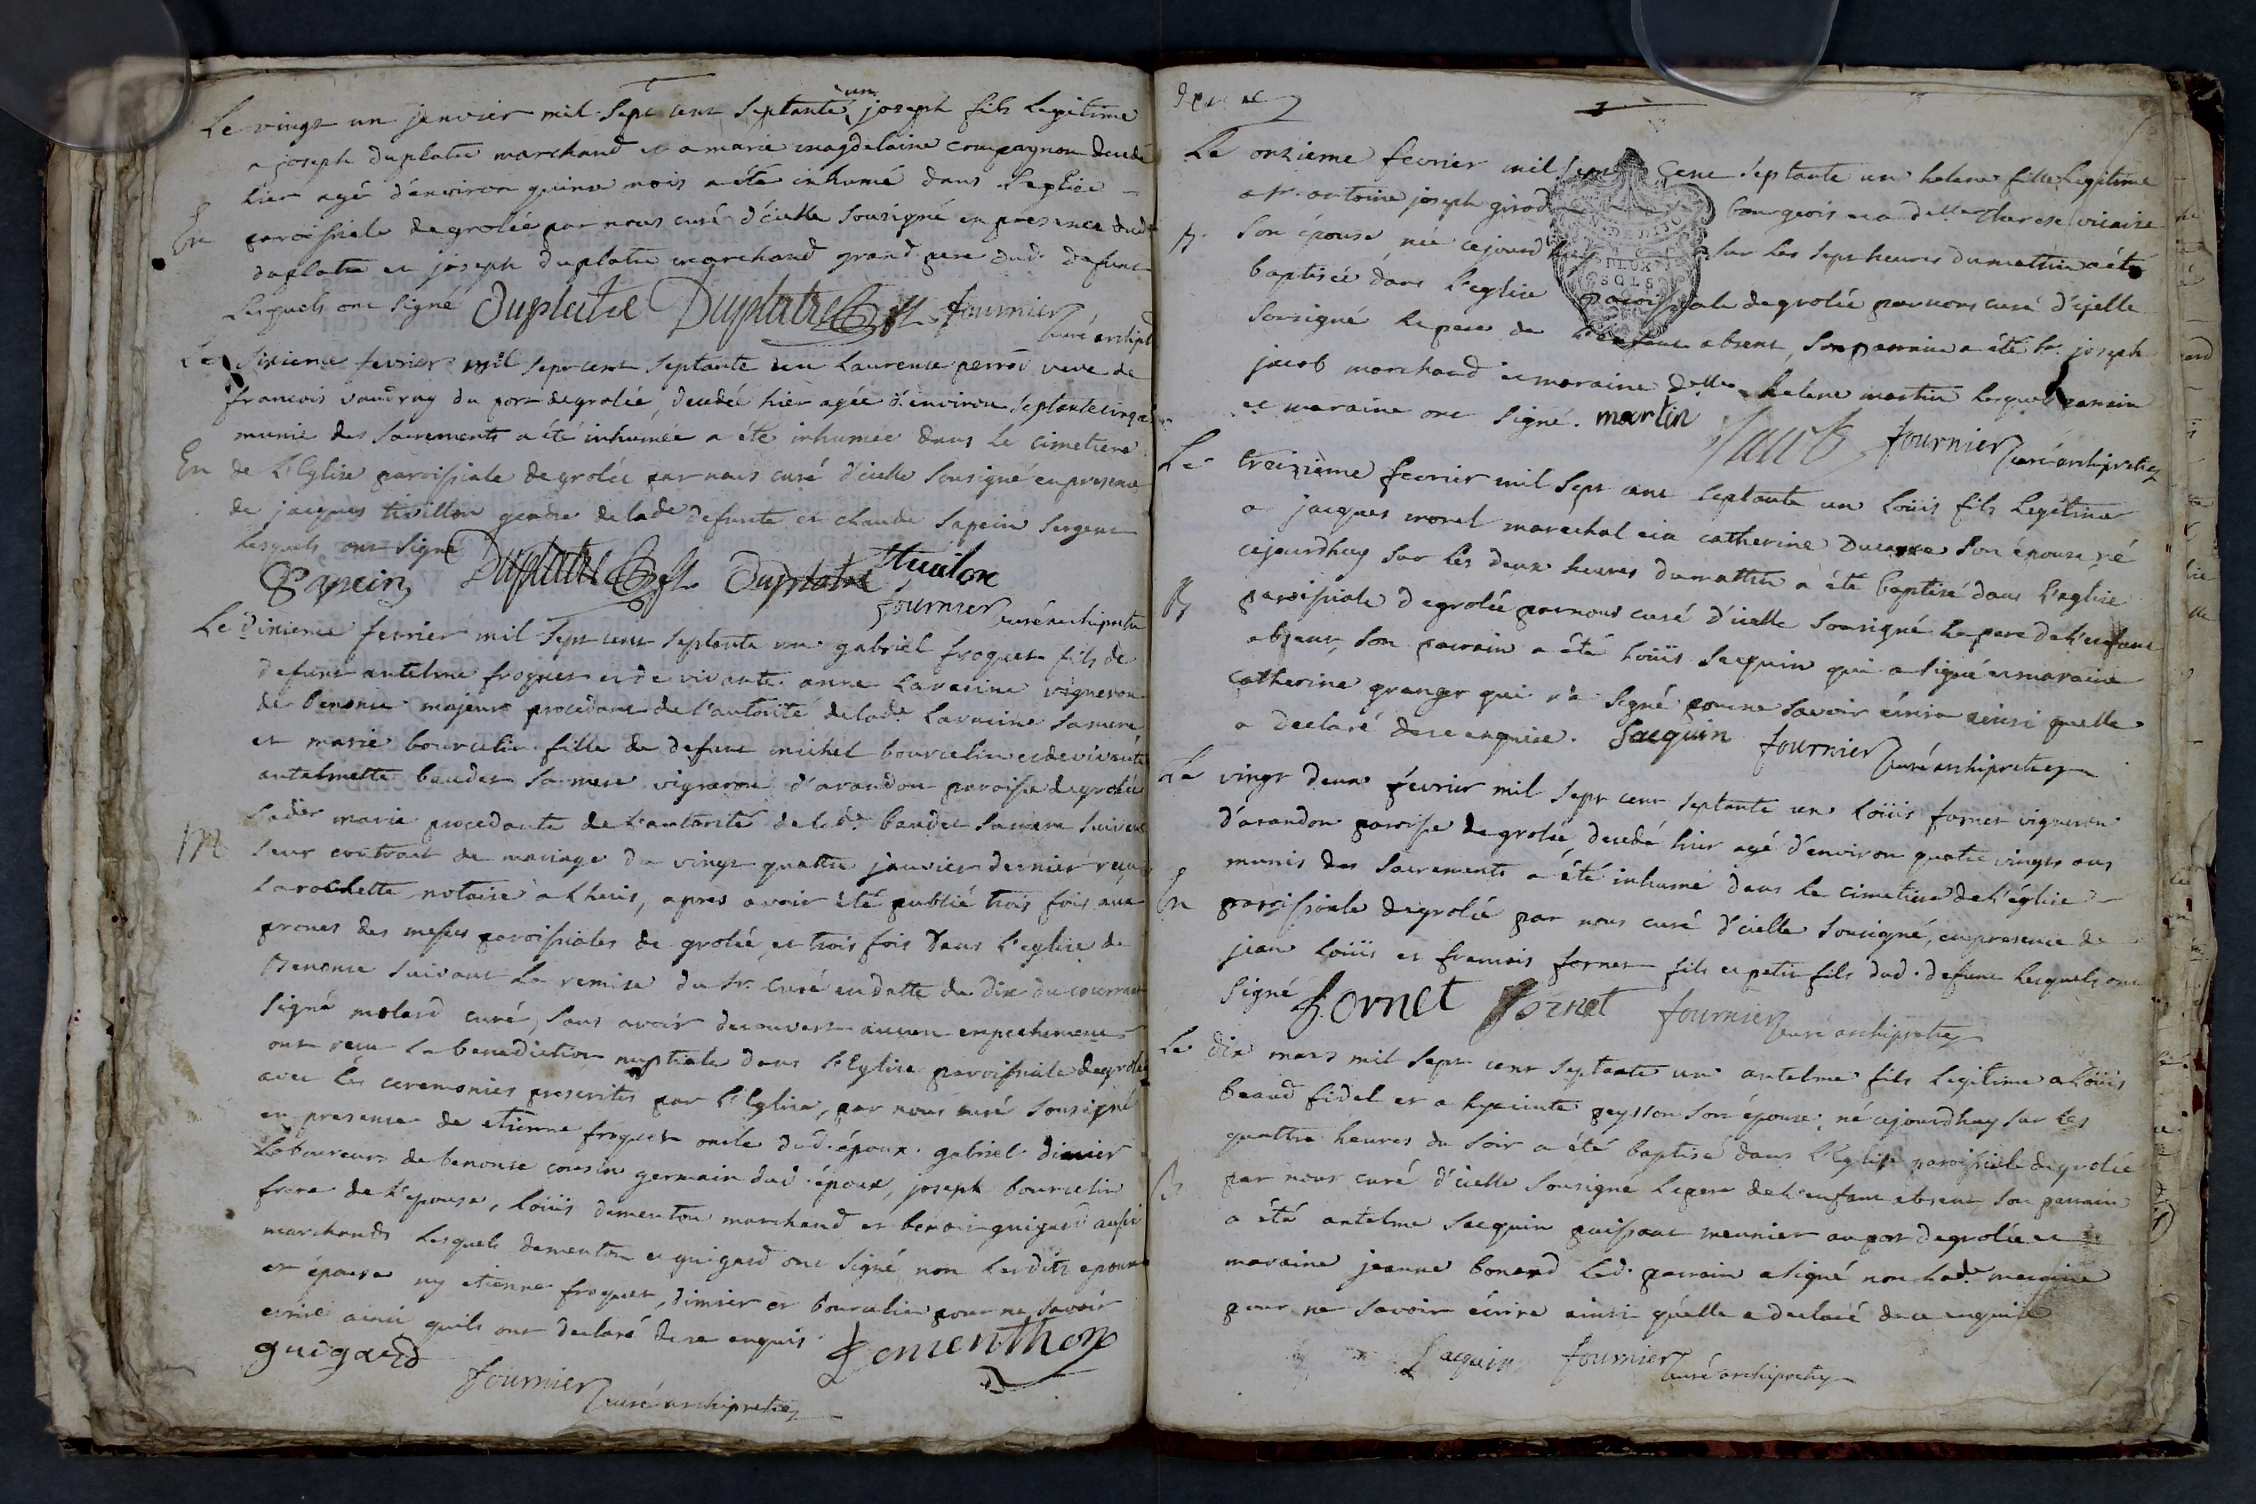 Le vingt un janvier mil sept cent septante un joseph fils legitime
a joseph duplatre marchand et a marie magdelaine compagnon decedé
hier agé d'environ quinze mois a été inhumé dans l'eglise
En
paroissiale de grolée par nous curé d'icelle sousigné en presence dud.
duplatre et joseph duplatre marchand grand pere dud. defunt
lesquels ont signé Duplatre Duplatre fournier curé archipr
Le sixieme fevrier mil sept cent septante un laurence perron veve de
francois vaudray du port de grolée, decedée hier agée d'environ septante cinq ans
munie des sacrements a été inhumée a été inhumée dans le cimetiere
En
de l'Eglise paroissiale de grolée par nous curé d'icelle sousigné en presence
de jacques thuillon gendre de lade defunte et claude sapein sergent
lesquels ont signé
Sapein Duplatre Duplatre thuilon
fournier curé archipretre
Le dixieme fevrier mil sept cent septante un gabriel froquet fils de
defunt antelme froquet et de vivante anne laracine vigneron
de benonce majeur procedant de l'autorité de lade laracine sa mere
et marie bourcelin fille de defunt michel bourcelin et de vivante
antelmette baudet sa mere vigneronne d'arandon paroisse de grolée
M
lade marie procedante de l'autorité de lade baudet sa mere suivant
leur contract de mariage du vingt quattre janvier dernier reçu
larochette notaire a lhuis, apres avoir été publié trois fois aux
prones des messes paroissiales de grolée, et trois fois dans l'eglise de
Benonce suivant la remise du sr. curé en datte du dix du courrant
signé molard curé, sans avoir decouvert aucun empechement
ont reçu la benediction nuptiale dans l'Eglise paroissiale de grolée
avec les ceremonies prescrites par l'Eglise, par nous curé sousigné
en presence de etienne froquet oncle dud. époux. gabriel dimier
laboureur de benonce cousin germain dud. époux, joseph bourcelin
frere de l'épouse, loüis dementon marchand et benoit guigard aussi
marchands lesquels dementon et guigard ont signé non lesdits epoux
et épouse ny etienne froquet, dimier et bourcelin pour ne savoir
ecrire ainsi quils ont declaré de ce enquis.
guigard Dementhon
fournier curé archipretre
Le onzieme fevrier mil sept cent septante un helene fille legitime
a sr. antoine joseph girod bourgeois et a delle therese vicaire
B
son épouse, née cejourdhuy sur les sept heures du mattin a été
baptisée dans l'eglise paroissiale de grolée par nous curé d'icelle
sousigné le pere de l'enfant absent, son parrain a été sr. joseph
jacob marchand et maraine delle helene martin lesquels parrain
et maraine ont signé. martin Jacob fournier curé archipretre
Le treizième fevrier mil sept cent septante un loüis fils legitime
a jacques morel marechal et a catherine son épouse, né
cejourdhuy sur les deux heures du mattin a été baptisé dans l'eglise
B
paroissiale de grolée par nous curé d'icelle sousigné le pere de l'enfant
absent, son parrain a été loüis Jacquin qui a signé et maraine
catherine granger qui n'a signé pour ne savoir écrire ainsi quelle
a declaré de ce enquise. Jacquin fournier curé archipretre
Le vingt deux février mil sept cent septante un loüis fornet vigneron
d'arandon paroisse de grolée, decedé hier agé d'environ quatre vingts ans
munis des sacrements a été inhumé dans le cimetiere de l'église
En
paroissiale de grolée par nous curé d'icelle sousigné, en presence de
jean loüis et francois fornet fils et petit fils dud. defunt lesquels ont
signé fornet fornet fournier curé archipretre
Le dix mars mil sept cent septante un antelme fils legitime a loüis
beaud fidel et a hyacinte peysson son épouse, né cejourdhuy sur les
quattre heures du soir a été baptisé dans l'Eglise paroissiale de grolée
B
par nous curé d'icelle sousigné le pere de l'enfant absent, son parrain
a été antelme Jacquin puissant meunier au port de grolée et
maraine jeanne bonard led. parrain a signé non lade. maraine
pour ne savoir écrire ainsi qu'elle a declaré de ce enquise
Jacquin fournier curé archipretre